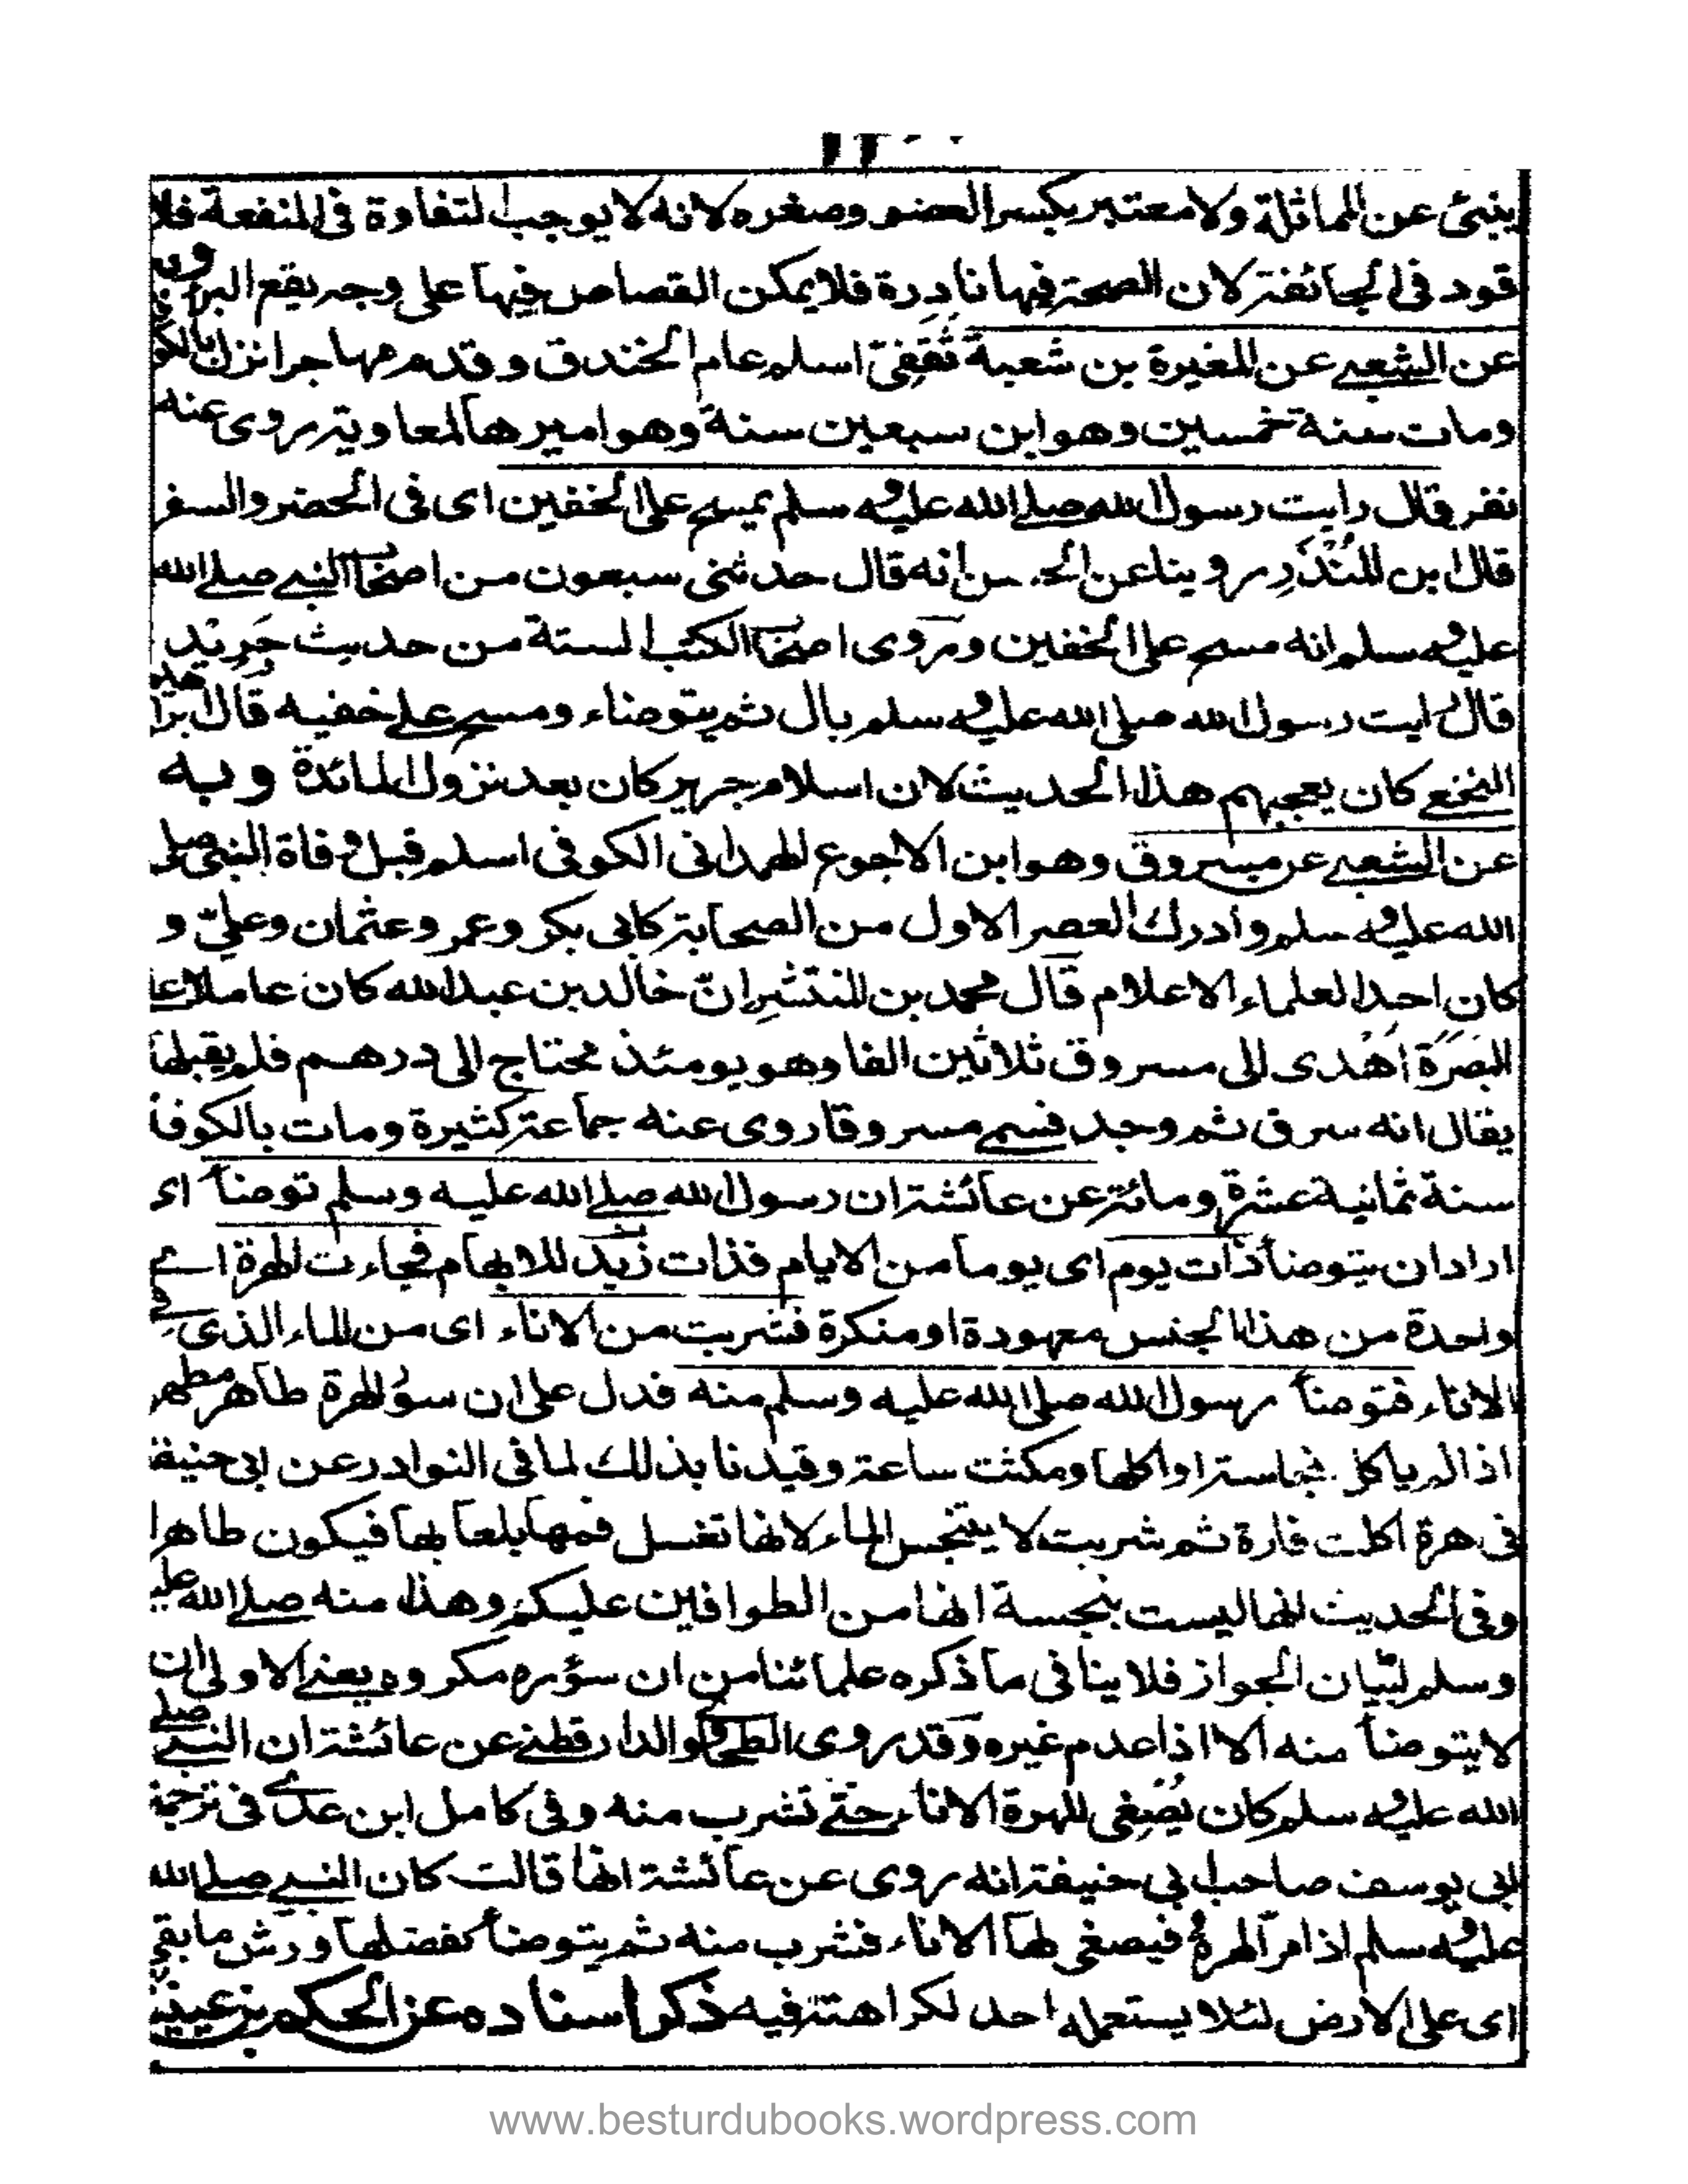 ينبئ عن المماثلة ولا معتبر بكبر العضو وصغره لانه لا يوجب التفاوة فى المنفعة فلا
قود فى الجائفة لان الصحة فيها نادرة فلا يمكن القصاص فيها على وجه يقع البرأ وبه
عن الشعبے عن المغيرة بن شعبة ثَقَفِىّ اسلم عام الخندق وقدم مهاجرا نزل بالكوفة
ومات سنة خمسين وهو ابن سبعين سنة وهو اميرها لمعاوية روى عنه
نفر قال رايت رسول الله صلے الله عليه وسلم يمسح على الخفين اى فى الحضر والسفر
قال ابن المُنْذِر روينا عن الحسن انه قال حدثنى سبعون من اصحاب النبے صلے الله
عليه وسلم انه مسح على الخفين وروى اصحاب الكتب الستة من حديث جرير
قال رايت رسول الله صلى الله عليه وسلم بال ثم يتوضاء ومسح علے خفيه قال ابراهيم
النخعے كان يعجبهم هذا الحديث لان اسلام جرير كان بعد نزول المائدة وبه
عن الشعبے عن مسروق وهو ابن الاجوع الهمدانى الكوفى اسلم قبل وفاة النبى صلى
الله عليه وسلم وادرك العصر الاول من الصحابة كابى بكر وعمر وعثمان وعلىّ و
كان احد العلماء الاعلام قال محمد بن المنتشر انّ خالد بن عبد الله كان عاملا على
البصرة اهدى الى مسروق ثلاثين الفا وهو يومئذ محتاج الى درهم فلم يقبلها
يقال انه سرق ثم وجد فسمے مسروقا روى عنه جماعة كثيرة ومات بالكوفة
سنة ثمانية عشرة ومائة عن عائشة ان رسول الله صلے الله عليه وسلم توضأ اى
اراد ان يتوضأ ذات يوم اى يوما من الايام فذات زيد للابهام فجاءت الهرة اے
واحدة من هذا الجنس معهودة او منكرة فشربت من الاناء اى من الماء الذى فے
الاناء فتوضأ رسول الله صلى الله عليه وسلم منه فدل على ان سؤر الهرة طاهر مطهر
اذا لم ياكل نجاسة او اكلها ومكثت ساعة وقيدنا بذلك لما فى النوادر عن ابى حنيفة
فى هرة اكلت فارة ثم شربت لا يتنجس الماء لانها تغسل فمها بلعابها فيكون طاهرا
وفى الحديث انها ليست بنجسة انها من الطوافين عليكم وهذا منه صلے الله عليه
وسلم لبيان الجواز فلا ينافى ما ذكره علمائنا من ان سؤره مكروه يعنے الاولى ان
لا يتوضأ منه الا اذا عدم غيره وقد روى الطحاوى والدارقطنے عن عائشة ان النبے صلے
الله عليه وسلم كان يُصْغِى للهرة الاناء حتے تشرب منه وفى كامل ابن عدے فى ترجمة
ابى يوسف صاحب ابى حنيفة انه روى عن عائشة انها قالت كان النبے صلے الله
عليه وسلم اذا مر الهرة فيصغى لها الاناء فتشرب منه ثم يتوضأ بفضلها ورش ما بقى
اى على الارض لئلا يستعمله احد لكراهته فيه ذكر اسناده عن الحكم بن عيينة
www.besturdubooks.wordpress.com